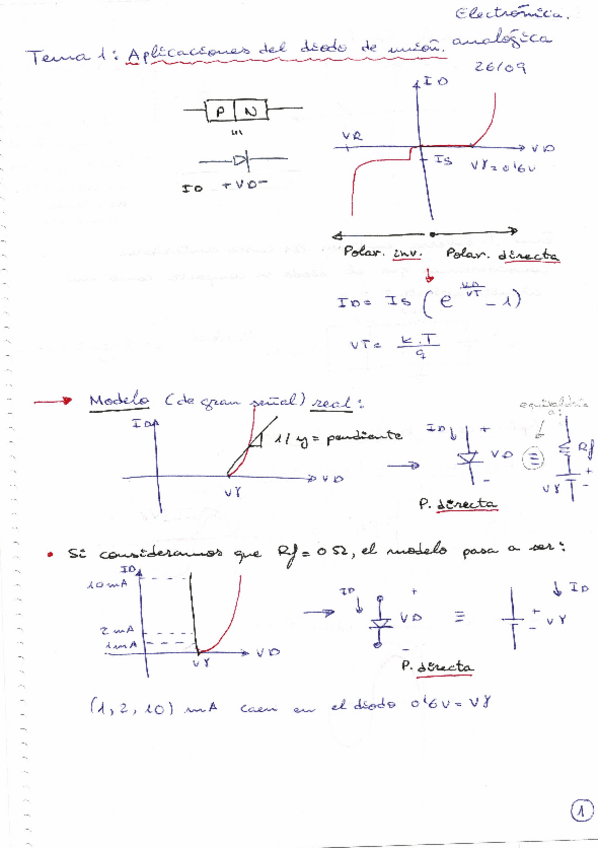 Electrónica
Tema 1: Aplicaciones del diodo de unión. analógica
26/09
P N
ID + VD -
ID
VR
IS
VD
Vγ = 0'6V
Polar. inv. Polar. directa
ID = IS (e^(VD/VT) - 1)
VT = k.T/q
→ Modelo (de gran señal) real:
ID
1/rf = pendiente
Vγ
VD
ID ↓ + VD -
→
≡
Rf
+ Vγ -
P. directa
• Si consideramos que Rf = 0Ω, el modelo pasa a ser:
ID
10mA
2mA
1mA
Vγ
VD
→
ID ↓ + VD -
≡
↓ ID
+ Vγ -
P. directa
(1, 2, 10) mA caen en el diodo 0'6V = Vγ
1